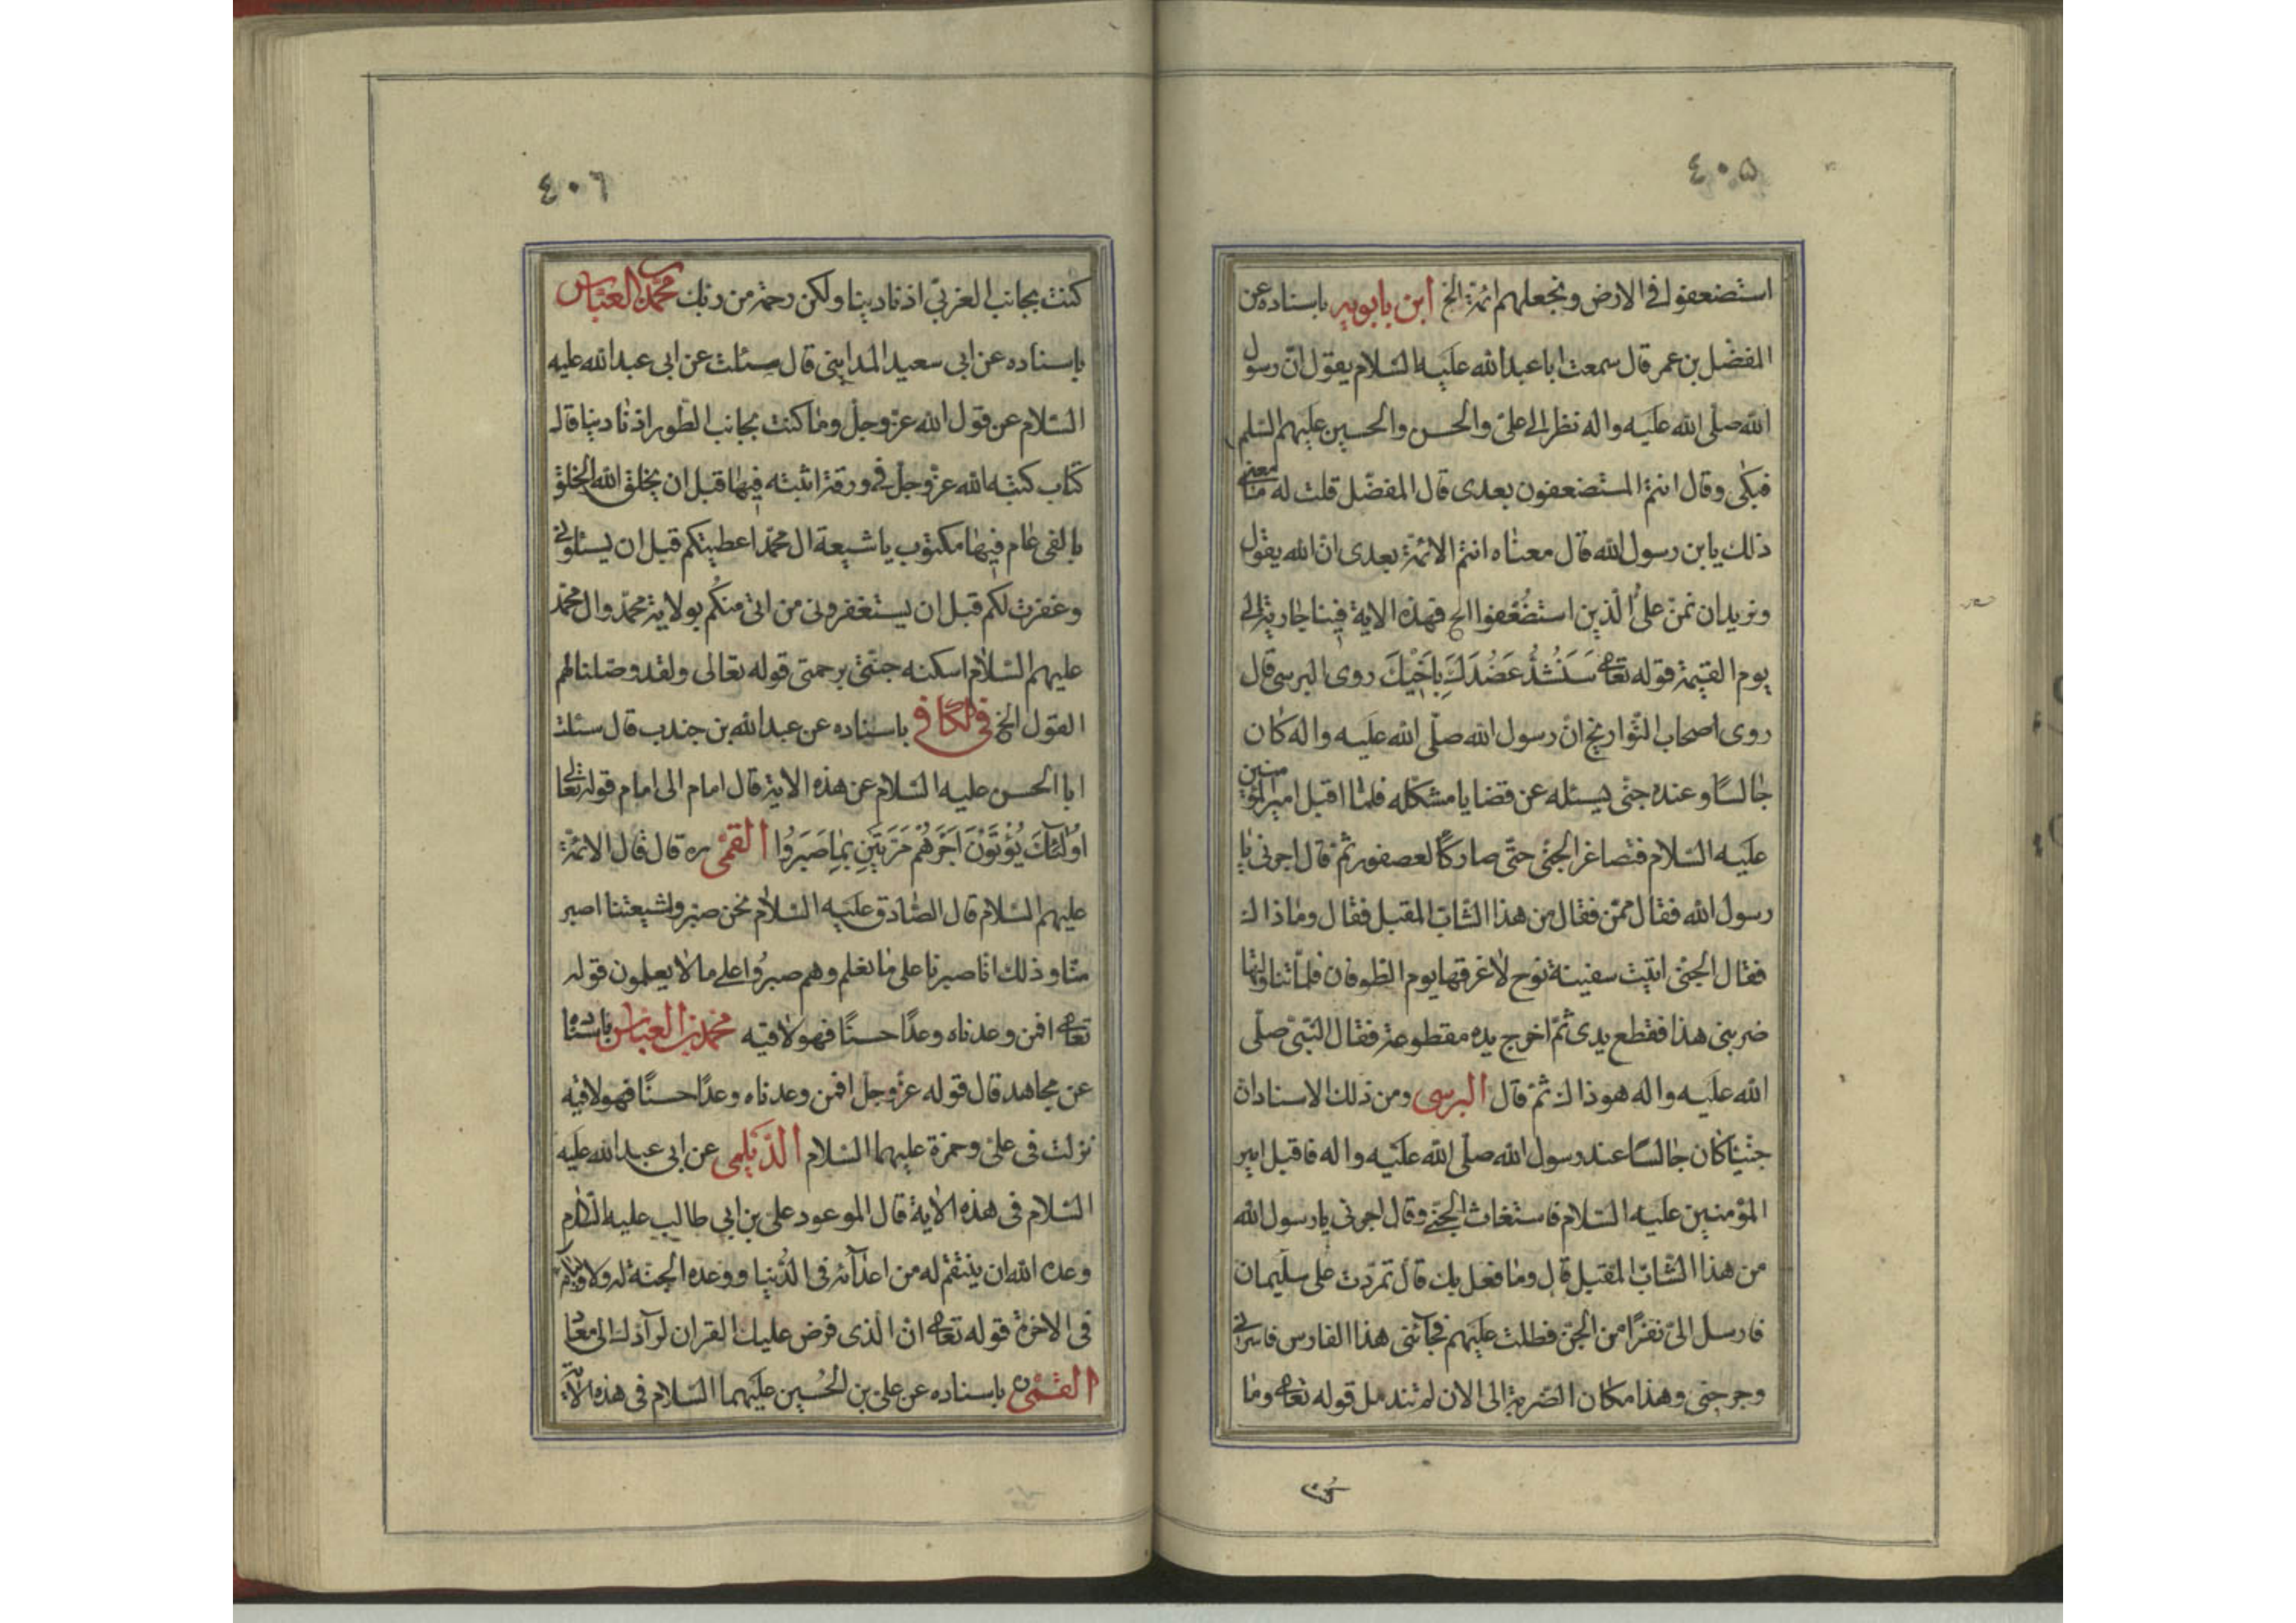 ٤٠٥
استضعفوا فى الارض ونجعلهم ائمة الخ ابن بابويه باسناده عن
المفضل بن عمر قال سمعت ابا عبد الله عليه السلام يقول ان رسول
الله صلى الله عليه واله نظر الى على والحسن والحسين عليهم السلم
فبكى وقال انتم المستضعفون بعدى قال المفضل قلت له ما معنى
ذلك يا بن رسول الله قال معناه انتم الائمة بعدى ان الله يقول
ونريد ان نمن على الذين استضعفوا الخ فهذه الاية فينا جارية الى
يوم القيمة قوله تعا سَنَشُدُّ عَضُدَكَ بِاَخِيكَ روى البرسى قال
روى اصحاب التواريخ ان رسول الله صلى الله عليه واله كان
جالسًا وعنده جنى يسئله عن قضايا مشكله فلما اقبل امير المؤمنين
عليه السلام فتصاغر الجنى حتى صار كالعصفور ثم قال اجرنى يا
رسول الله فقال ممن فقال من هذا الشاب المقبل فقال وما ذاك
فقال الجنى اتيت سفينة نوح لاغرقها يوم الطوفان فلما تناولتها
ضربنى هذا فقطع يدى ثم اخرج يده مقطوعة فقال النبى صلى
الله عليه واله هو ذاك ثم قال البرسى ومن ذلك الاسناد ان
جنيًا كان جالسًا عند رسول الله صلى الله عليه واله فاقبل امير
المؤمنين عليه السلام فاستغاث الجنى وقال اجرنى يا رسول الله
من هذا الشاب المقبل قال وما فعل بك قال تمردت على سليمان
فارسل الى نفرًا من الجن فطلت عليهم فجآئنى هذا الفارس فاسرنى
وجرحنى وهذا مكان الضربة الى الان لم تندمل قوله تعا وما
كنت
٤٠٦
كنت بجانب الغربى اذ نادينا ولكن رحمة من ربك محمد العباس
باسناده عن ابى سعيد المداينى قال سئلت عن ابى عبد الله عليه
السلام عن قول الله عز وجل وما كنت بجانب الطور اذ نادينا قال
كتاب كتبه الله عز وجل فى ورقة اثبته فيها قبل ان يخلق الله الخلق
بالفى عام فيها مكتوب يا شيعة ال محمد اعطيتكم قبل ان يسئلونى
وغفرت لكم قبل ان يستغفرونى من اتى منكم بولاية محمد وال محمد
عليهم السلام اسكنه جنتى برحمتى قوله تعالى ولقد وصلنا لهم
القول الخ فى الكافى باسناده عن عبد الله بن جندب قال سئلت
ابا الحسن عليه السلام عن هذه الاية قال امام الى امام قوله تعالى
اُولٰئكَ يُؤْتَوْنَ اَجْرَهُمْ مَرَّتَيْنِ بِمَا صَبَرُوا القمى ره قال قال الائمة
عليهم السلام قال الصادق عليه السلام نحن صبر وشيعتنا اصبر
منا وذلك انا صبرنا على ما نعلم وهم صبروا على ما لا يعلمون قوله
تعا افمن وعدناه وعدًا حسنًا فهو لاقيه محمد بن العباس باسناده
عن مجاهد قال قوله عز وجل افمن وعدناه وعدًا حسنًا فهو لاقيه
نزلت فى على وحمزة عليهما السلام الديلمى عن ابى عبد الله عليه
السلام فى هذه الاية قال الموعود على بن ابى طالب عليه السلام
وعده الله ان ينتقم له من اعدآئه فى الدنيا ووعده الجنة له ولاوليائه
فى الاخرة قوله تعا ان الذى فرض عليك القران لرآدك الى معاد
القمى باسناده عن على بن الحسين عليهما السلام فى هذه الاية